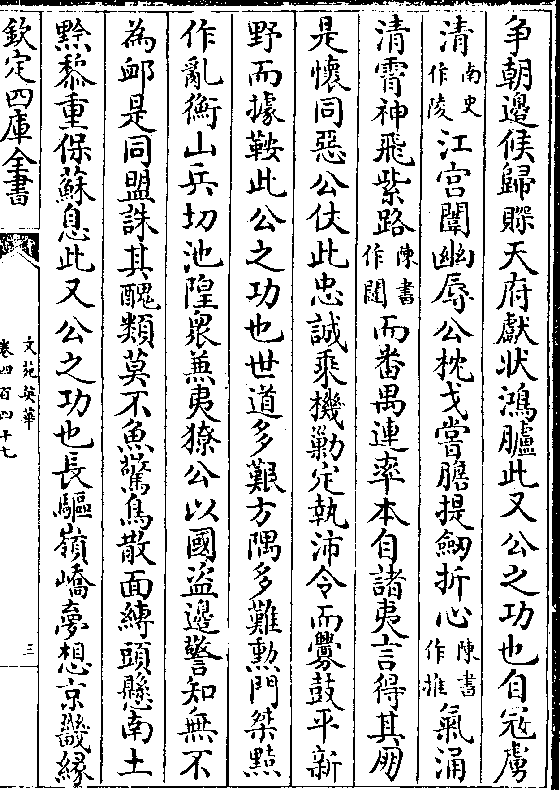 争朝邊候歸賝天府獻狀鴻臚此又公之功也自冦虜
清南史作陵江宫闈幽辱公枕戈嘗膽提劒折心陳書作推氣涌
清霄神飛紫路陳書作闥而番禺連率本自諸夷言得其朋
是懷同惡公仗此忠誠乘機勦定執沛令而釁鼓平新
野而據鞍此公之功也世道多艱方隅多難勲門桀黠
作亂衡山兵切池隍衆兼夷獠公以國盜邊警知無不
為䘏是同盟誅其醜類莫不魚驚鳥散面縛頭懸南土
黔黎重保蘇息此又公之功也長驅嶺嶠夢想京畿縁
欽定四庫全書
文苑英華
卷四百四十七
三